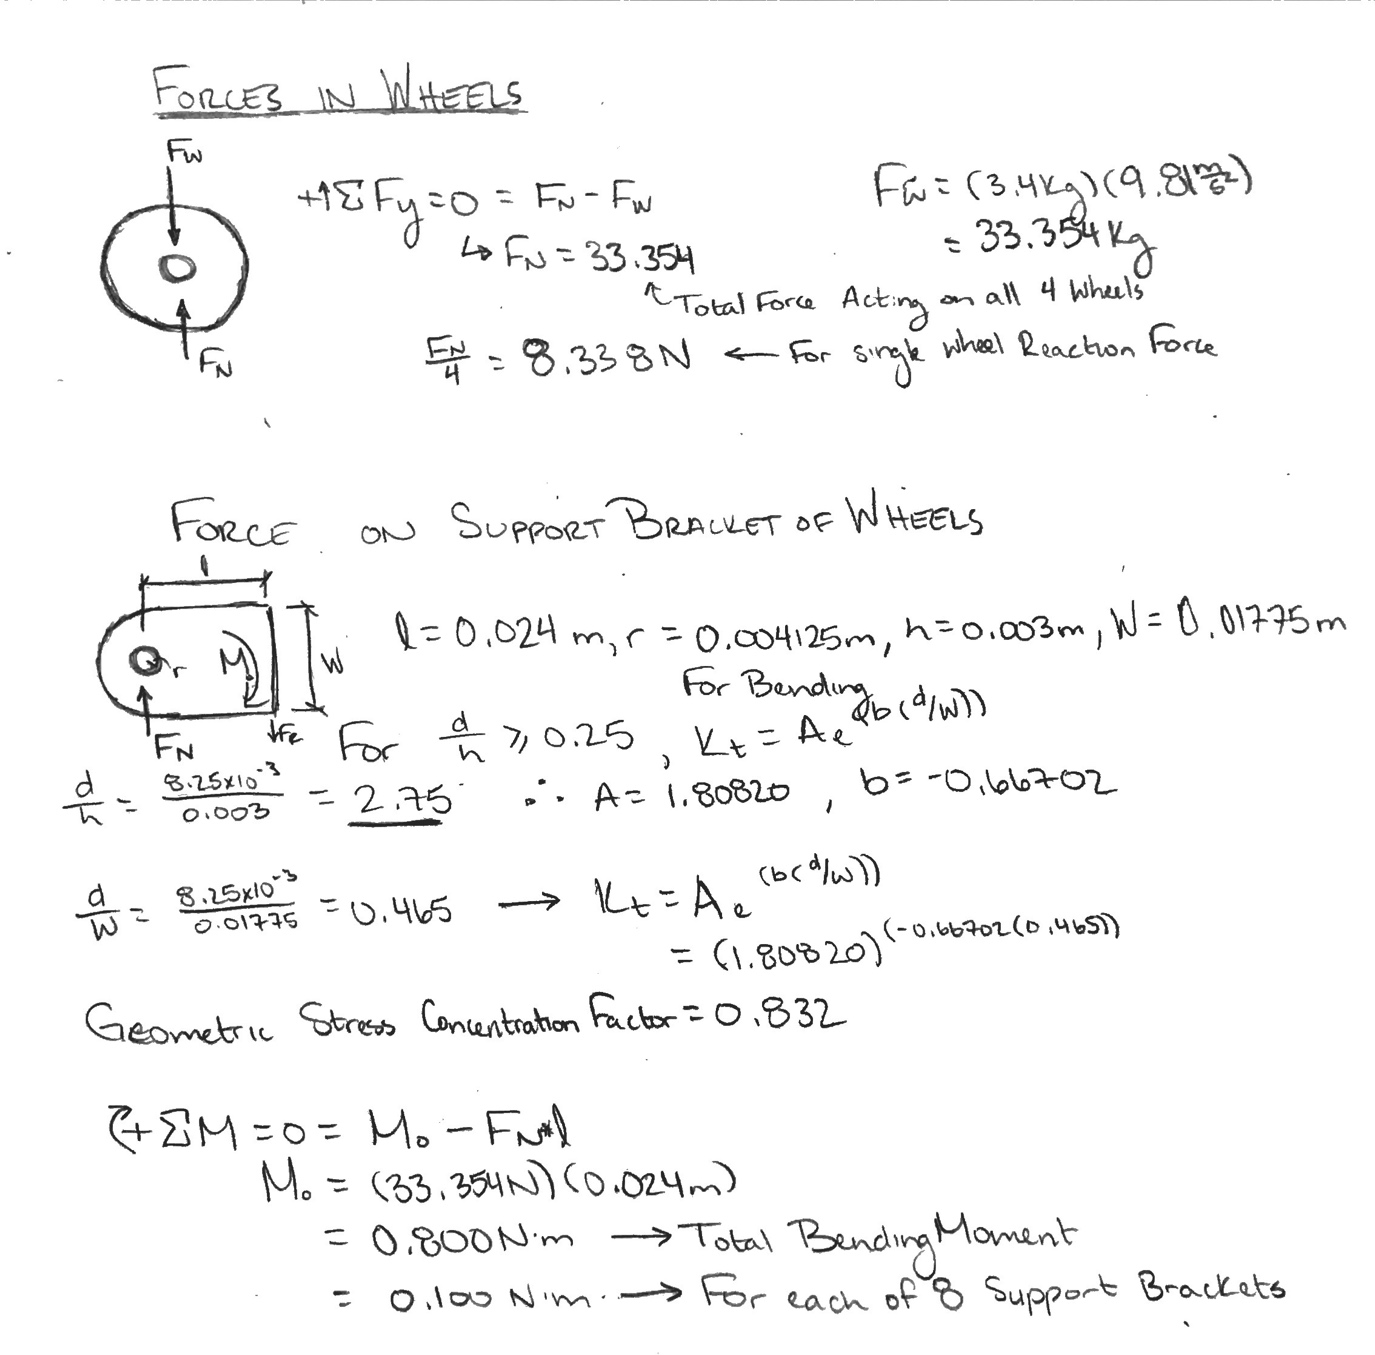 FORCES IN WHEELS
Fw
+↑ΣFy=0 = FN - Fw
Fw = (3.4kg)(9.81 m/s²)
= 33.354 kg
↳ FN = 33.354
↑ Total Force Acting on all 4 wheels
FN/4 = 8.338N ← For single wheel Reaction Force
FN
FORCE ON SUPPORT BRACKET OF WHEELS
l
l = 0.024 m, r = 0.004125m, h = 0.003m, W = 0.01775m
r M W
For Bending
FN
For d/h ⩾ 0.25, Kt = Ae^(b(d/w))
d/h = 8.25x10^-3/0.003 = 2.75 ∴ A = 1.80820, b = -0.66702
d/W = 8.25x10^-3/0.01775 = 0.465 → Kt = Ae^(b(d/w))
= (1.80820)^(-0.66702(0.465))
Geometric Stress Concentration Factor = 0.832
↻+ ΣM = 0 = Mo - FN*l
Mo = (33.354N)(0.024m)
= 0.800 N·m → Total Bending Moment
= 0.100 N·m. → For each of 8 Support Brackets